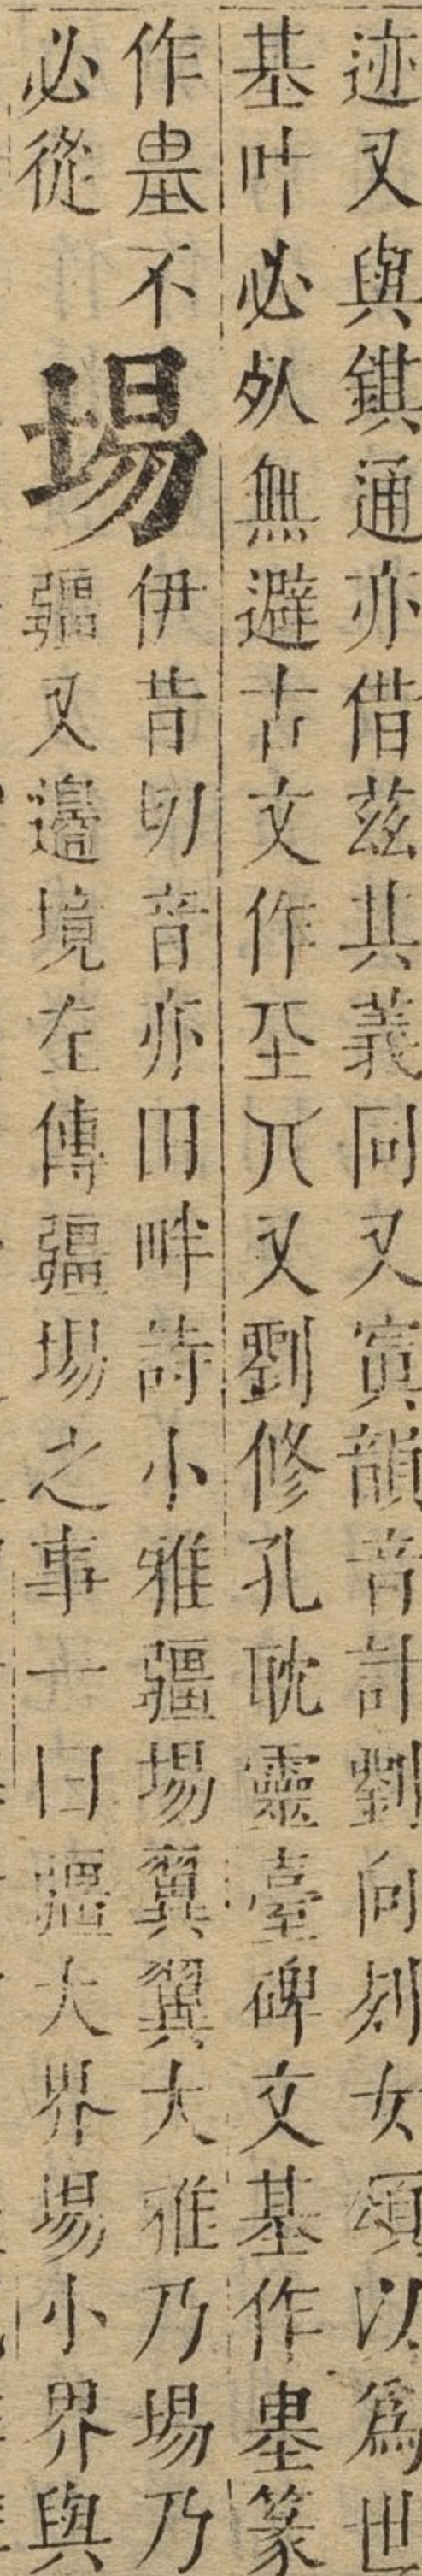 迹又與錤通亦借茲其義同又寘韻音計劉向列女頌以爲世
基叶必夘無避古文作坖丌又劉修孔耽靈臺碑文基作𡋑篆
作𡋑不
必從
埸
伊昔切音亦田畔詩小雅疆埸翼翼大雅乃埸乃
疆又邊境左傳疆埸之事一曰疆大界埸小界與